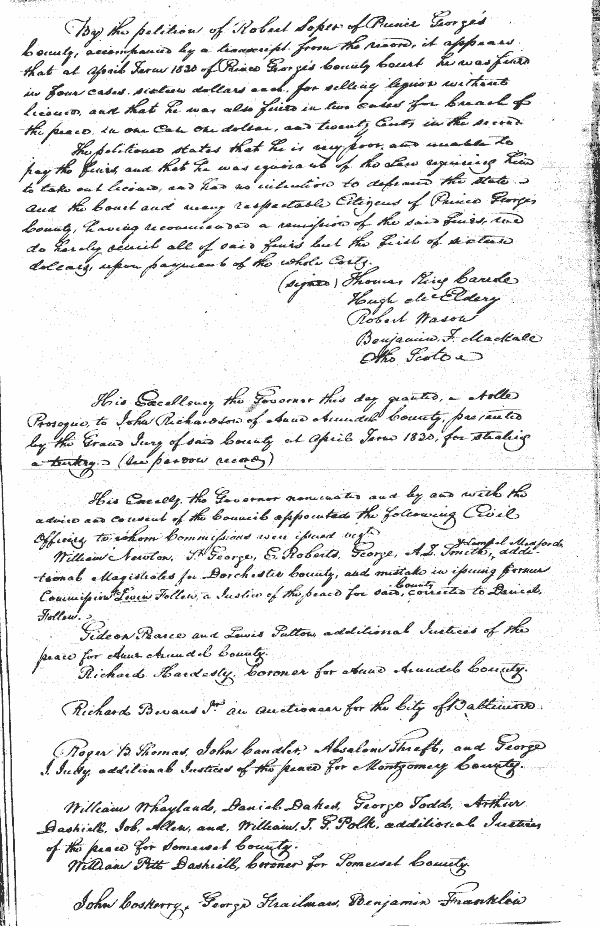 By the petition of Robert Soper of Prince George's
County, accompanied by a transcript from the record, it appears
that at April Term 1820 of Prince George's County Court he was fined
in four cases, sixteen dollars each, for selling liquor without
licence, and that he was also fined in two cases for breach of
the peace, in one case one dollar, and twenty Cents in the second
The petitioner states that he is very poor, and unable to
pay the fines, and that he was ignorant of the Law requiring him
to take out licence, and had no intention to defraud the state,
and the Court and many respectable Citizens of Prince Georges
County, having recommended a remission of the said fines, we
do hereby remit all of said fines but the first of sixteen
dollars, upon payment of the whole Costs.
(signed) Thomas King Carroll
Hugh McEldery
Robert Wason
Benjamin F. Mackall
Otho Scott
His Excellency the Governor this day granted, a Nolle
Proseque, to John Richardson of Anne Arundel County, presented
by the Grand Jury of said County at April Term 1830, for stealing
a turkey. (See pardon record)
His Excelly. the Governor nominated and by and with the
advice and consent of the Council appointed the following Civil
Officers, to whom Commissions were issued
William Newton, George, E. Roberts, George, A. Z. Smith, addi-
tional Magistrates for Dorchester County, and mistake in issuing former
Commission Levin Follow, a Justice of the peace for said County, corrected to Daniel
Follow.
Gideon Pearce and Lewis Sutton, additional Justices of the
peace for Anne Arundel County.
Richard Hardesty, Coroner for Anne Arundel County.
Richard Bevans Jr. an auctioneer for the City of Baltimore
Roger B. Thomas, John Candler, Absalom Thrift, and George
additional Justices of the peace for Montgomery County.
William Whayland, Daniel Dakes, George Todd, Arthur
Dashiell, Job, Allen, and, William, T. G. Polk, additional Justices
of the peace for Somerset County.
William Pitt Dashiell, Coroner for Somerset County.
John Coskerry, George Trailman, Benjamin Franklin